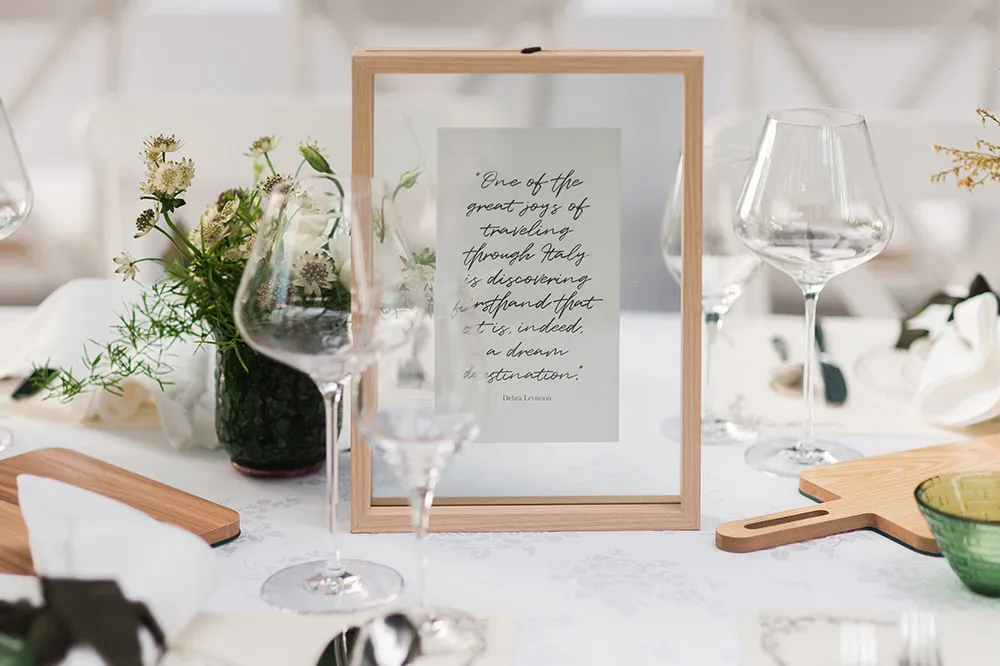 "One of the
great joys of
traveling
through Italy
is discovering
firsthand that
it is, indeed,
a dream
destination."
Debra Levinson